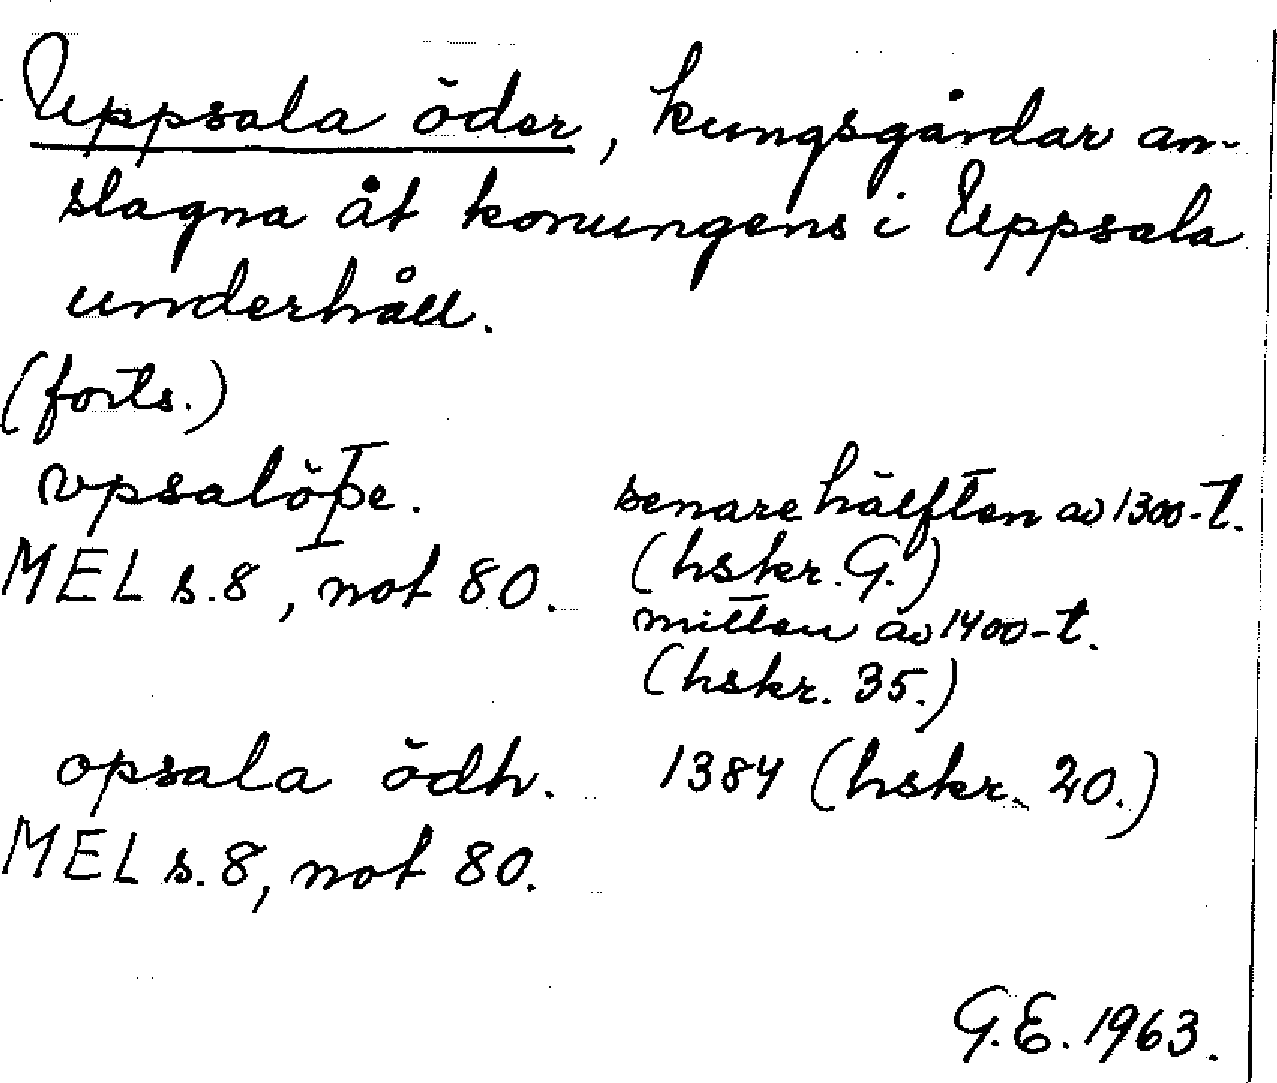 Uppsala öder, kungsgårdar an-
slagna åt konungens i Uppsala
underhåll.
(forts.)
vpsalöþe. senare hälften av 1300-t.
(hskr. G.)
MEL s. 8, not 80. mitten av 1400-t.
(hskr. 35.)
opsala ödh. 1384 (hskr. 20.)
MEL s. 8, not 80.
G.E. 1963.